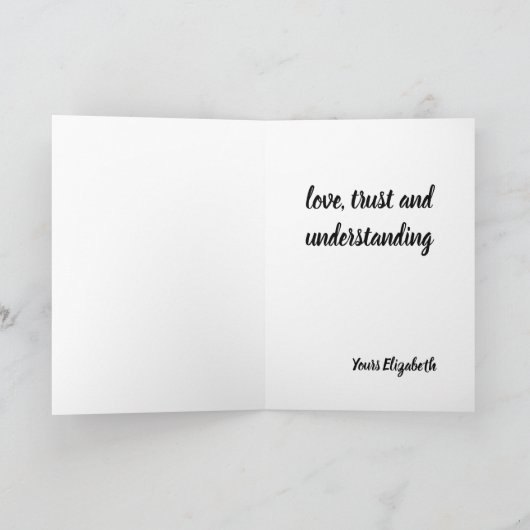 love, trust and
understanding
Yours Elizabeth